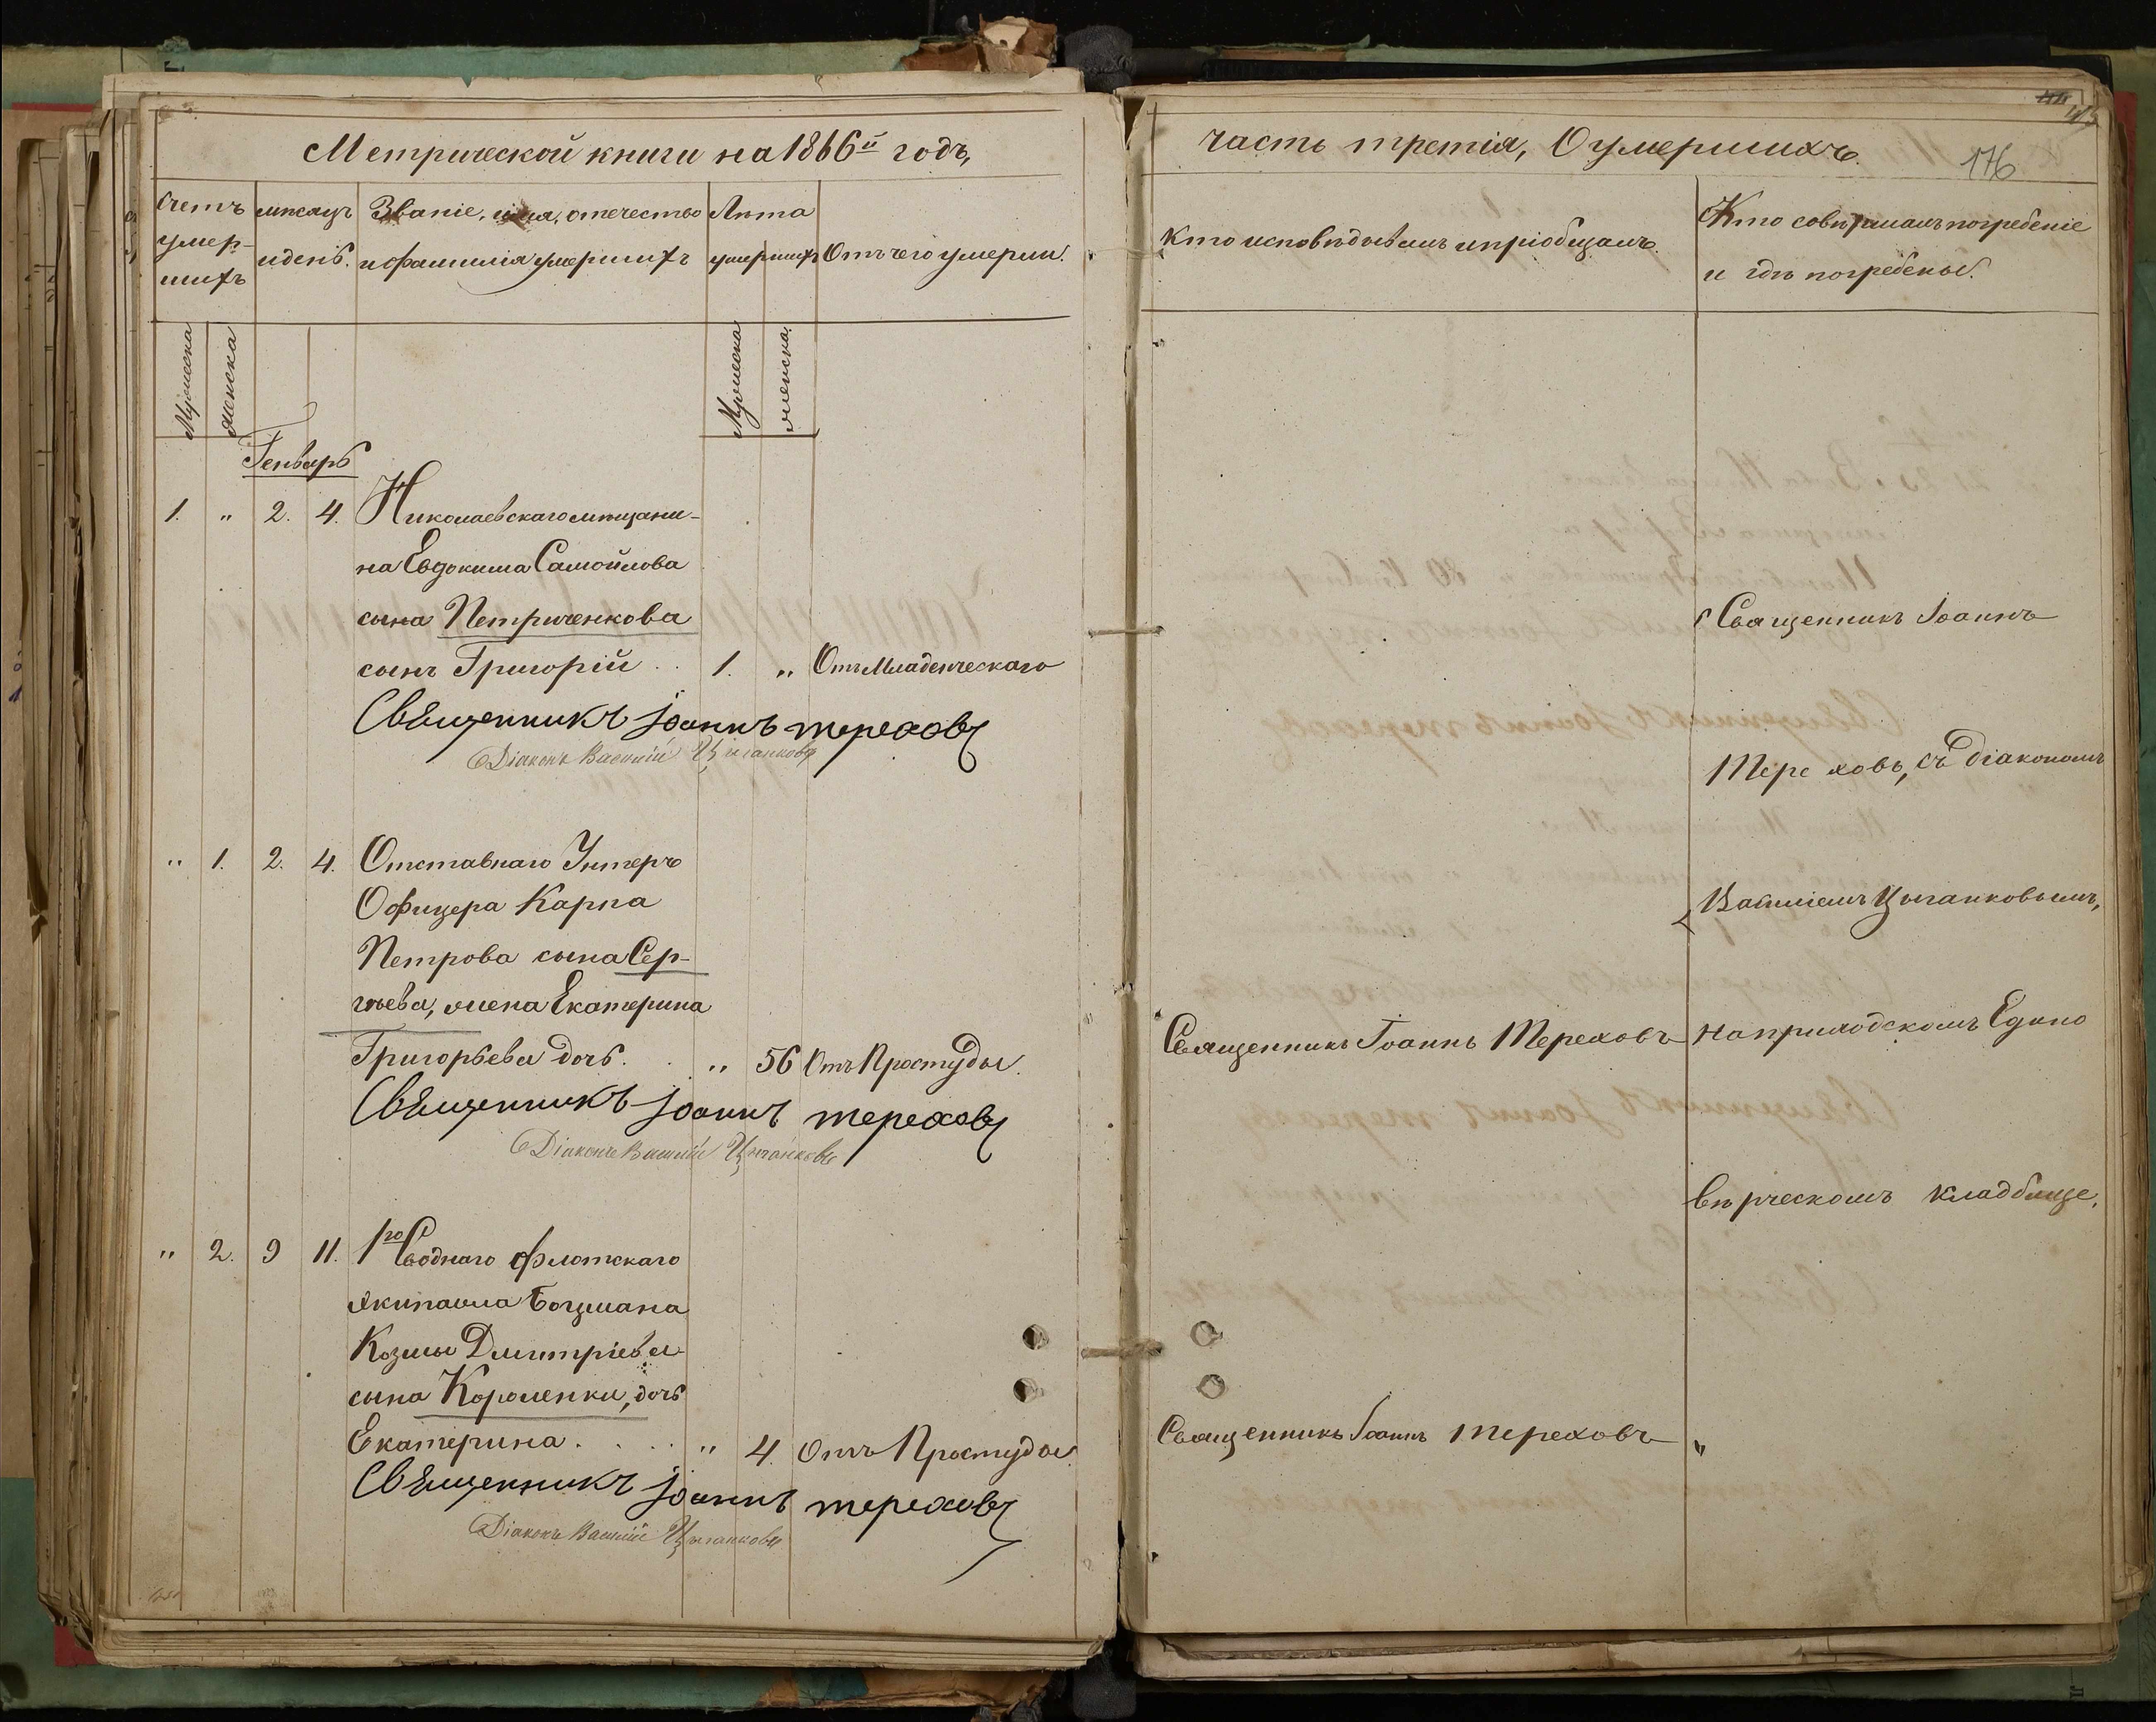 Метрической книги на 1866й годъ,
Счетъ умер-шихъ
мѣсяцъ и день.
Званіе, имя, отечество и фамилія умершихъ
Лѣта умершихъ
Отъ чего умерли.
Мужеска
женска
Мужеска
женска
Генварь
1. „ 2. 4. Николаевскаго мѣщани-
на Евдокима Самойлова
сына Петриченкова
сынъ Григорій . . 1. „ Отъ Младенческаго
Священникъ Іоаннъ Тереховъ
Діаконъ Василій Цыганковъ
„ 1. 2. 4. Отставнаго Унтеръ
Офицера Карпа
Петрова сына Сер-
гѣева, жена Екатерина
Григорьева дочь. . „ 56 Отъ Простуды.
Священникъ Іоаннъ Тереховъ
Діаконъ Василій Цыганковъ
„ 2. 9 11. 1го Своднаго Флотскаго
Экипажа Боцмана
Козмы Дмитріева
сына Короленки, дочь
Екатерина . . . . „ 4. Отъ Простуды.
Священникъ Іоаннъ Тереховъ
Діаконъ Василій Цыганковъ
часть третія, О умершихъ.
176
Кто исповѣдывалъ и пріобщалъ.
Кто совершалъ погребеніе
и гдѣ погребены.
Священникъ Іоаннъ
Тереховъ, съ Діакономъ
Василіемъ Цыганковымъ,
Священникъ Іоаннъ Тереховъ
на приходскомъ Едино
вѣрческомъ кладбище.
Священникъ Іоаннъ Тереховъ „